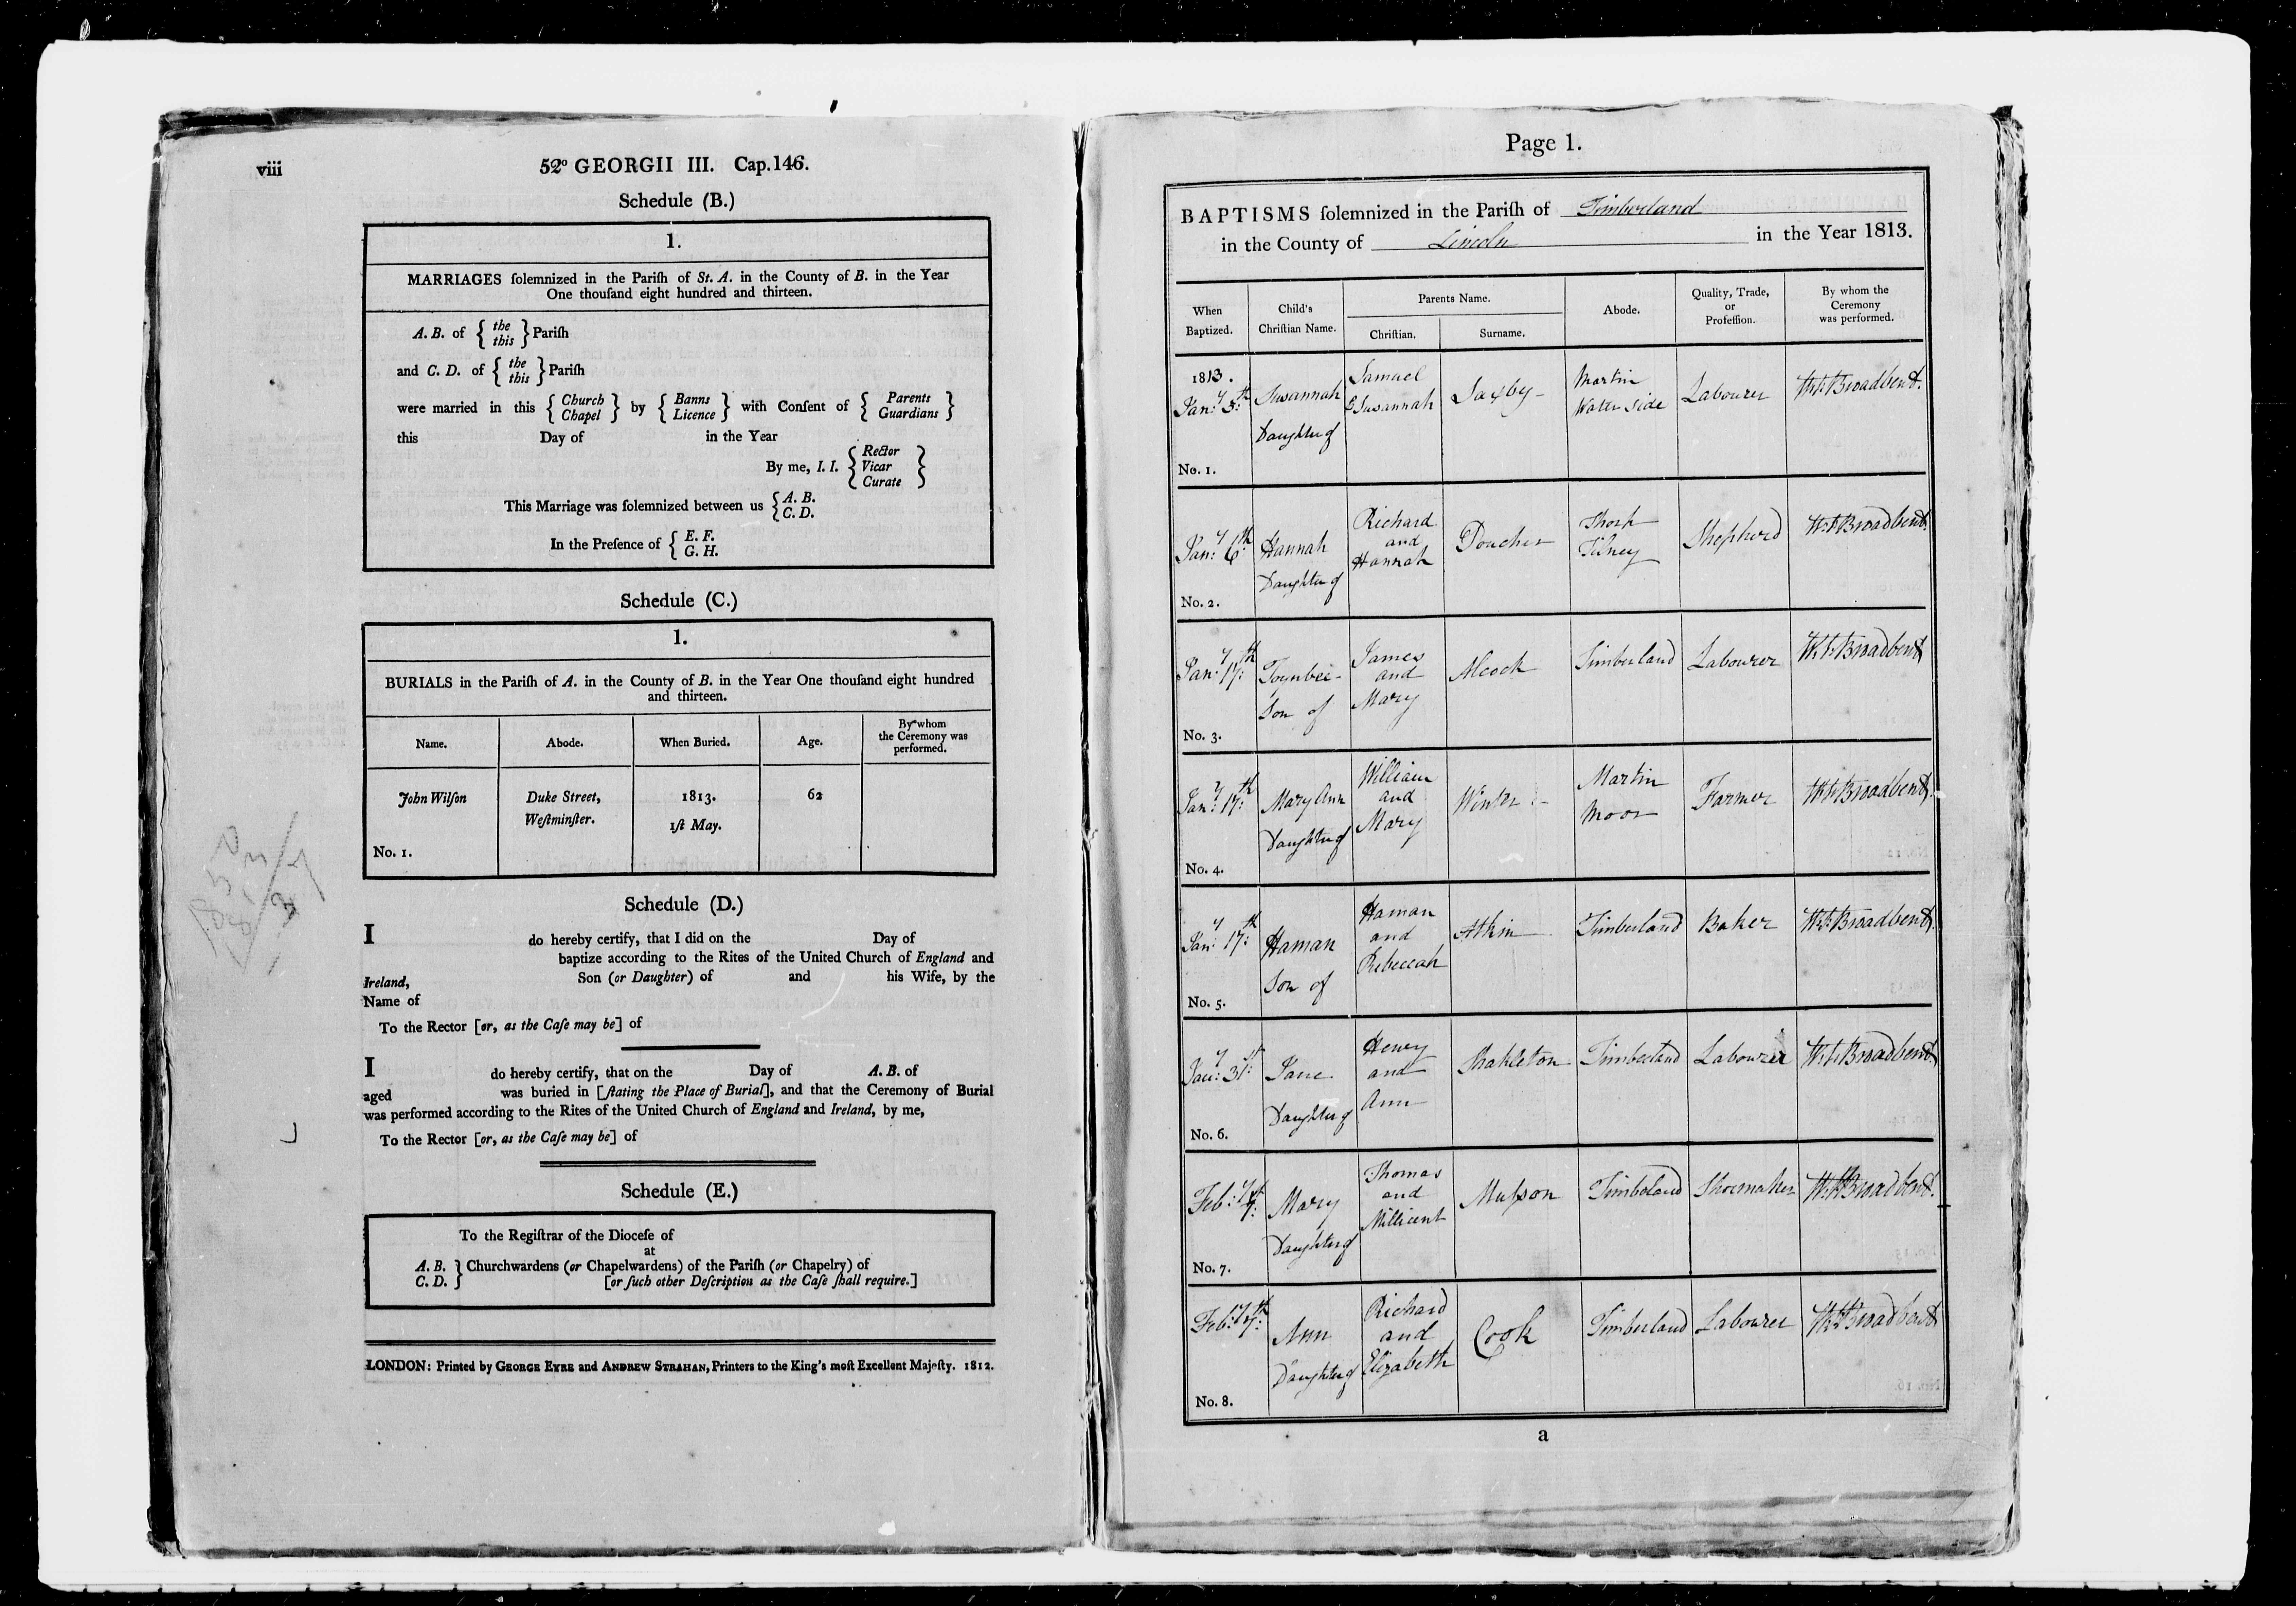 viii
52º GEORGII III. Cap.146.
Schedule (B.)
1.
MARRIAGES ſolemnized in the Pariſh of St. A. in the County of B. in the Year
One thouſand eight hundred and thirteen.
A. B. of { the this } Pariſh
and C. D. of { the this } Pariſh
were married in this { Church Chapel } by { Banns Licence } with Conſent of { Parents Guardians }
this Day of in the Year
By me, I. I. { Rector Vicar Curate }
This Marriage was ſolemnized between us { A. B. C. D.
In the Preſence of { E. F. G. H.
Schedule (C.)
1.
BURIALS in the Pariſh of A. in the County of B. in the Year One thouſand eight hundred
and thirteen.
Name. Abode. When Buried. Age. By whom the Ceremony was performed.
John Wilſon Duke Street, 1813. 62
Weſtminſter. 1ſt May.
No. 1.
Schedule (D.)
I do hereby certify, that I did on the Day of
baptize according to the Rites of the United Church of England and
Ireland, Son (or Daughter) of and his Wife, by the
Name of
To the Rector [or, as the Caſe may be] of
I do hereby certify, that on the Day of A. B. of
aged was buried in [ſtating the Place of Burial], and that the Ceremony of Burial
was performed according to the Rites of the United Church of England and Ireland, by me,
To the Rector [or, as the Caſe may be] of
Schedule (E.)
To the Regiſtrar of the Dioceſe of
at
A. B. C. D. } Churchwardens (or Chapelwardens) of the Pariſh (or Chapelry) of
[or ſuch other Deſcription as the Caſe ſhall require.]
LONDON: Printed by GEORGE EYRE and ANDREW STRAHAN, Printers to the King's moſt Excellent Majeſty. 1812.
Page 1.
BAPTISMS ſolemnized in the Pariſh of Timberland
in the County of Lincoln in the Year 1813.
When Baptized. Child's Chriſtian Name. Parents Name. Abode. Quality, Trade, or Profeſſion. By whom the Ceremony was performed.
Chriſtian. Surname.
1813. Jan:y 3:th Susannah Daughter of Samuel & Susannah Saxby Martin Water Side Labourer W.F. Broadbent.
No. 1.
Jan:y 6:th Hannah Daughter of Richard and Hannah Doucher Thorp Tilney Shepherd W.F. Broadbent.
No. 2.
Jan:y 17:th Toynbee Son of James and Mary Alcock Timberland Labourer W.F. Broadbent
No. 3.
Jan:y 17:th Mary Ann Daughter of William and Mary Winter Martin Moor Farmer W.F. Broadbent.
No. 4.
Jan:y 17:th Haman Son of Haman and Rebeccah Atkin Timberland Baker W.F. Broadbent.
No. 5.
Jan:y 31:st Jane Daughter of Henry and Ann Shakleton Timberland Labourer W.F. Broadbent.
No. 6.
Feb:y 7: Mary Daughter of Thomas and Millicent Mupson Timberland Shoemaker W.F. Broadbent.
No. 7.
Feb:y 7:th Ann Daughter of Richard and Elizabeth Cook Timberland Labourer W.F. Broadbent
No. 8.
a